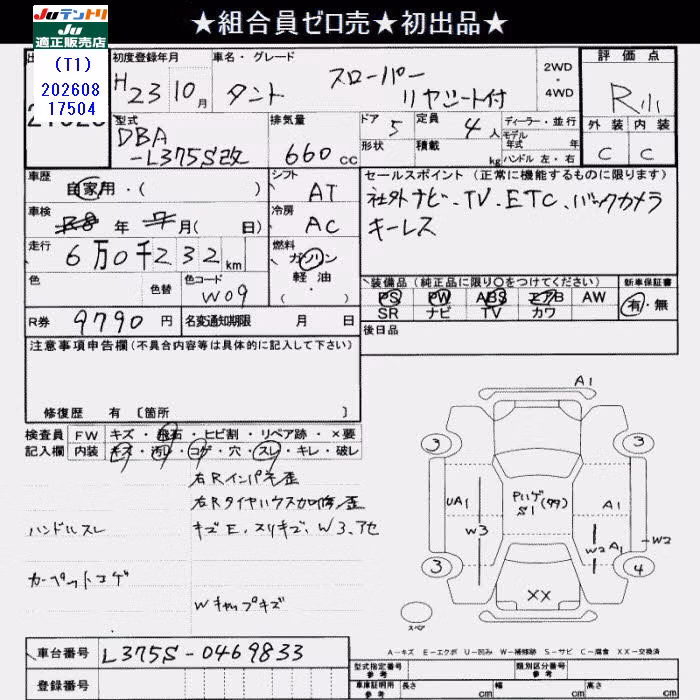 ★組合員ゼロ売★初出品★
JUテントリ
JU
適正販売店
(T1)
202608
17504
初度登録年月
H23 10月
車名・グレード
タント スローパー
リヤシート付
2WD
・
4WD
評価点
R
外装 内装
C C
型式
DBA
-L375S改
排気量
660cc
ドア
5
定員
4人
ディーラー・並行
モデル
年式 年式
形状
積載 kg
ハンドル 左・右
車歴
自家用・( )
シフト
AT
セールスポイント(正常に機能するものに限ります)
社外ナビ、TV、ETC、バックカメラ
キーレス
車検
R8年7月( 日)
冷房
AC
走行
6万0千232km
燃料
ガソリン
軽油
( ・ )
色
色替
色コード
W09
装備品(純正品に限り○をつけてください)
PS PW ABS エアB AW
SR ナビ TV カワ
新車保証書
有・無
R券
9790円
名変通知期限 月 日
後日品
注意事項申告欄(不具合内容等は具体的に記入して下さい)
修復歴 有 [箇所 ]
検査員
記入欄
FW キズ・飛石・ヒビ割・リペア跡・×要
内装 キズ・汚レ・コゲ・穴・スレ・キレ・破レ
右Rインパネ歪
右Rタイヤハウス加修歪
ハンドルスレ
キズE、スリキズ、W3、アセ
カーペットコゲ
Wキャップキズ
A1
3 3
UA1
W3
Pハゲ(タタ)
S1
A1
W2 A1
W2
3 4
XX
スペア
A-キズ E-エクボ U-凹み W-補修跡 S-サビ C-腐食 XX-交換済
車台番号
L375S-0469833
登録番号
型式指定番号
参考
類別区分番号
参考
車庫証明用
参考
長さ cm
幅 cm
高さ cm